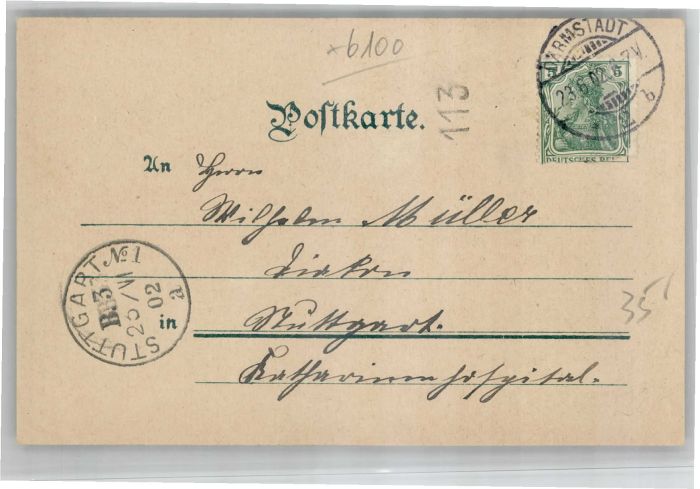 x6100
DARMSTADT
23.6.02. 6-7V.
b
5 5
DEUTSCHES REICH
113
Postkarte.
An Herrn
Wilhelm Müller
Diakon
in Stuttgart.
Katharinenhospital.
STUTTGART No 1
VI
02
a
35